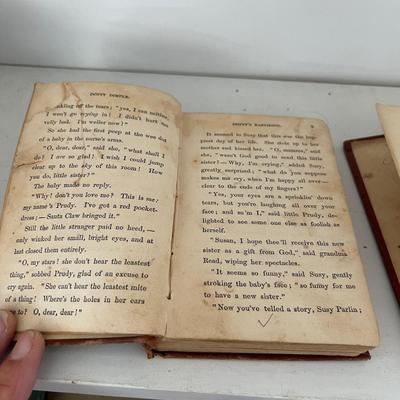 DOTTY DIMPLE.
winking off the tears; "yes, I can neither.
I won't go crying in! I didn't hurt me
velly bad. I'm weller now?"
So she had the first peep at the wee dot
of a baby in the nurse's arms.
"O, dear, dear," said she, "what shall I
do? I are so glad! I wish I could jump
clear up to the sky of this room! How
you do, little sister?"
The baby made no reply.
"Why! don't you love me? This is me;
my name's Prudy. I've got a red pocket-
dress; — Santa Claw bringed it."
Still the little stranger paid no heed,—
only winked her small, bright eyes, and at
last closed them entirely.
"O, my stars! she don't hear the leastest
thing," sobbed Prudy, glad of an excuse to
cry again. "She can't hear the leastest mite
of a thing! Where's the holes in her ears
gone to? O, dear, dear!"
DOTTY'S BABYHOOD. 9
It seemed to Susy that this was the hap-
piest day of her life. She stole up to her
mother and kissed her. "O, mamma," said
she, "wasn't God good to send this little
sister! — Why, I'm crying," added Susy,
greatly surprised; "what do you suppose
makes me cry, when I'm happy all over—
clear to the ends of my fingers?"
"Yes, your eyes are a sprinklin' down
tears, but you're laughing all over your
face; and so'm I," said little Prudy, de-
lighted to see some one else as foolish as
herself.
"Susan, I hope thee'll receive this new
sister as a gift from God," said grandma
Read, wiping her spectacles.
"It seems so funny," said Susy, gently
stroking the baby's face; "so funny for me
to have a new sister."
"Now you've telled a story, Susy Parlin;